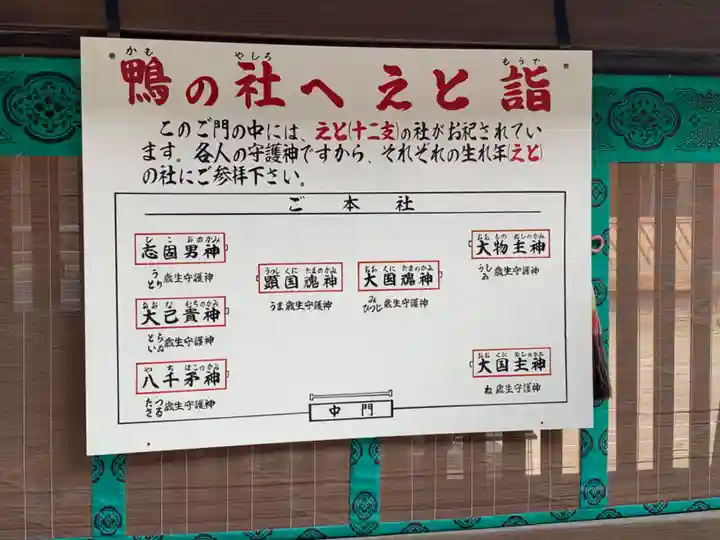 かも やしろ もうで
鴨の社へえと詣
このご門の中には、えと(十二支)の社がお祀されてい
ます。各人の守護神ですから、それぞれの生れ年(えと)
の社にご参拝下さい。
ご本社
しこ おのかみ
志固男神
うとり歳生守護神
おおな むちのかみ
大己貴神
とらいぬ歳生守護神
やち ほこのかみ
八千矛神
たつさる歳生守護神
うつしくに たまのかみ
顕国魂神
うま歳生守護神
おおくに たまのかみ
大国魂神
みひつじ歳生守護神
おおもの ぬしのかみ
大物主神
うしゐ歳生守護神
おおくに ぬしのかみ
大国主神
ね歳生守護神
中門